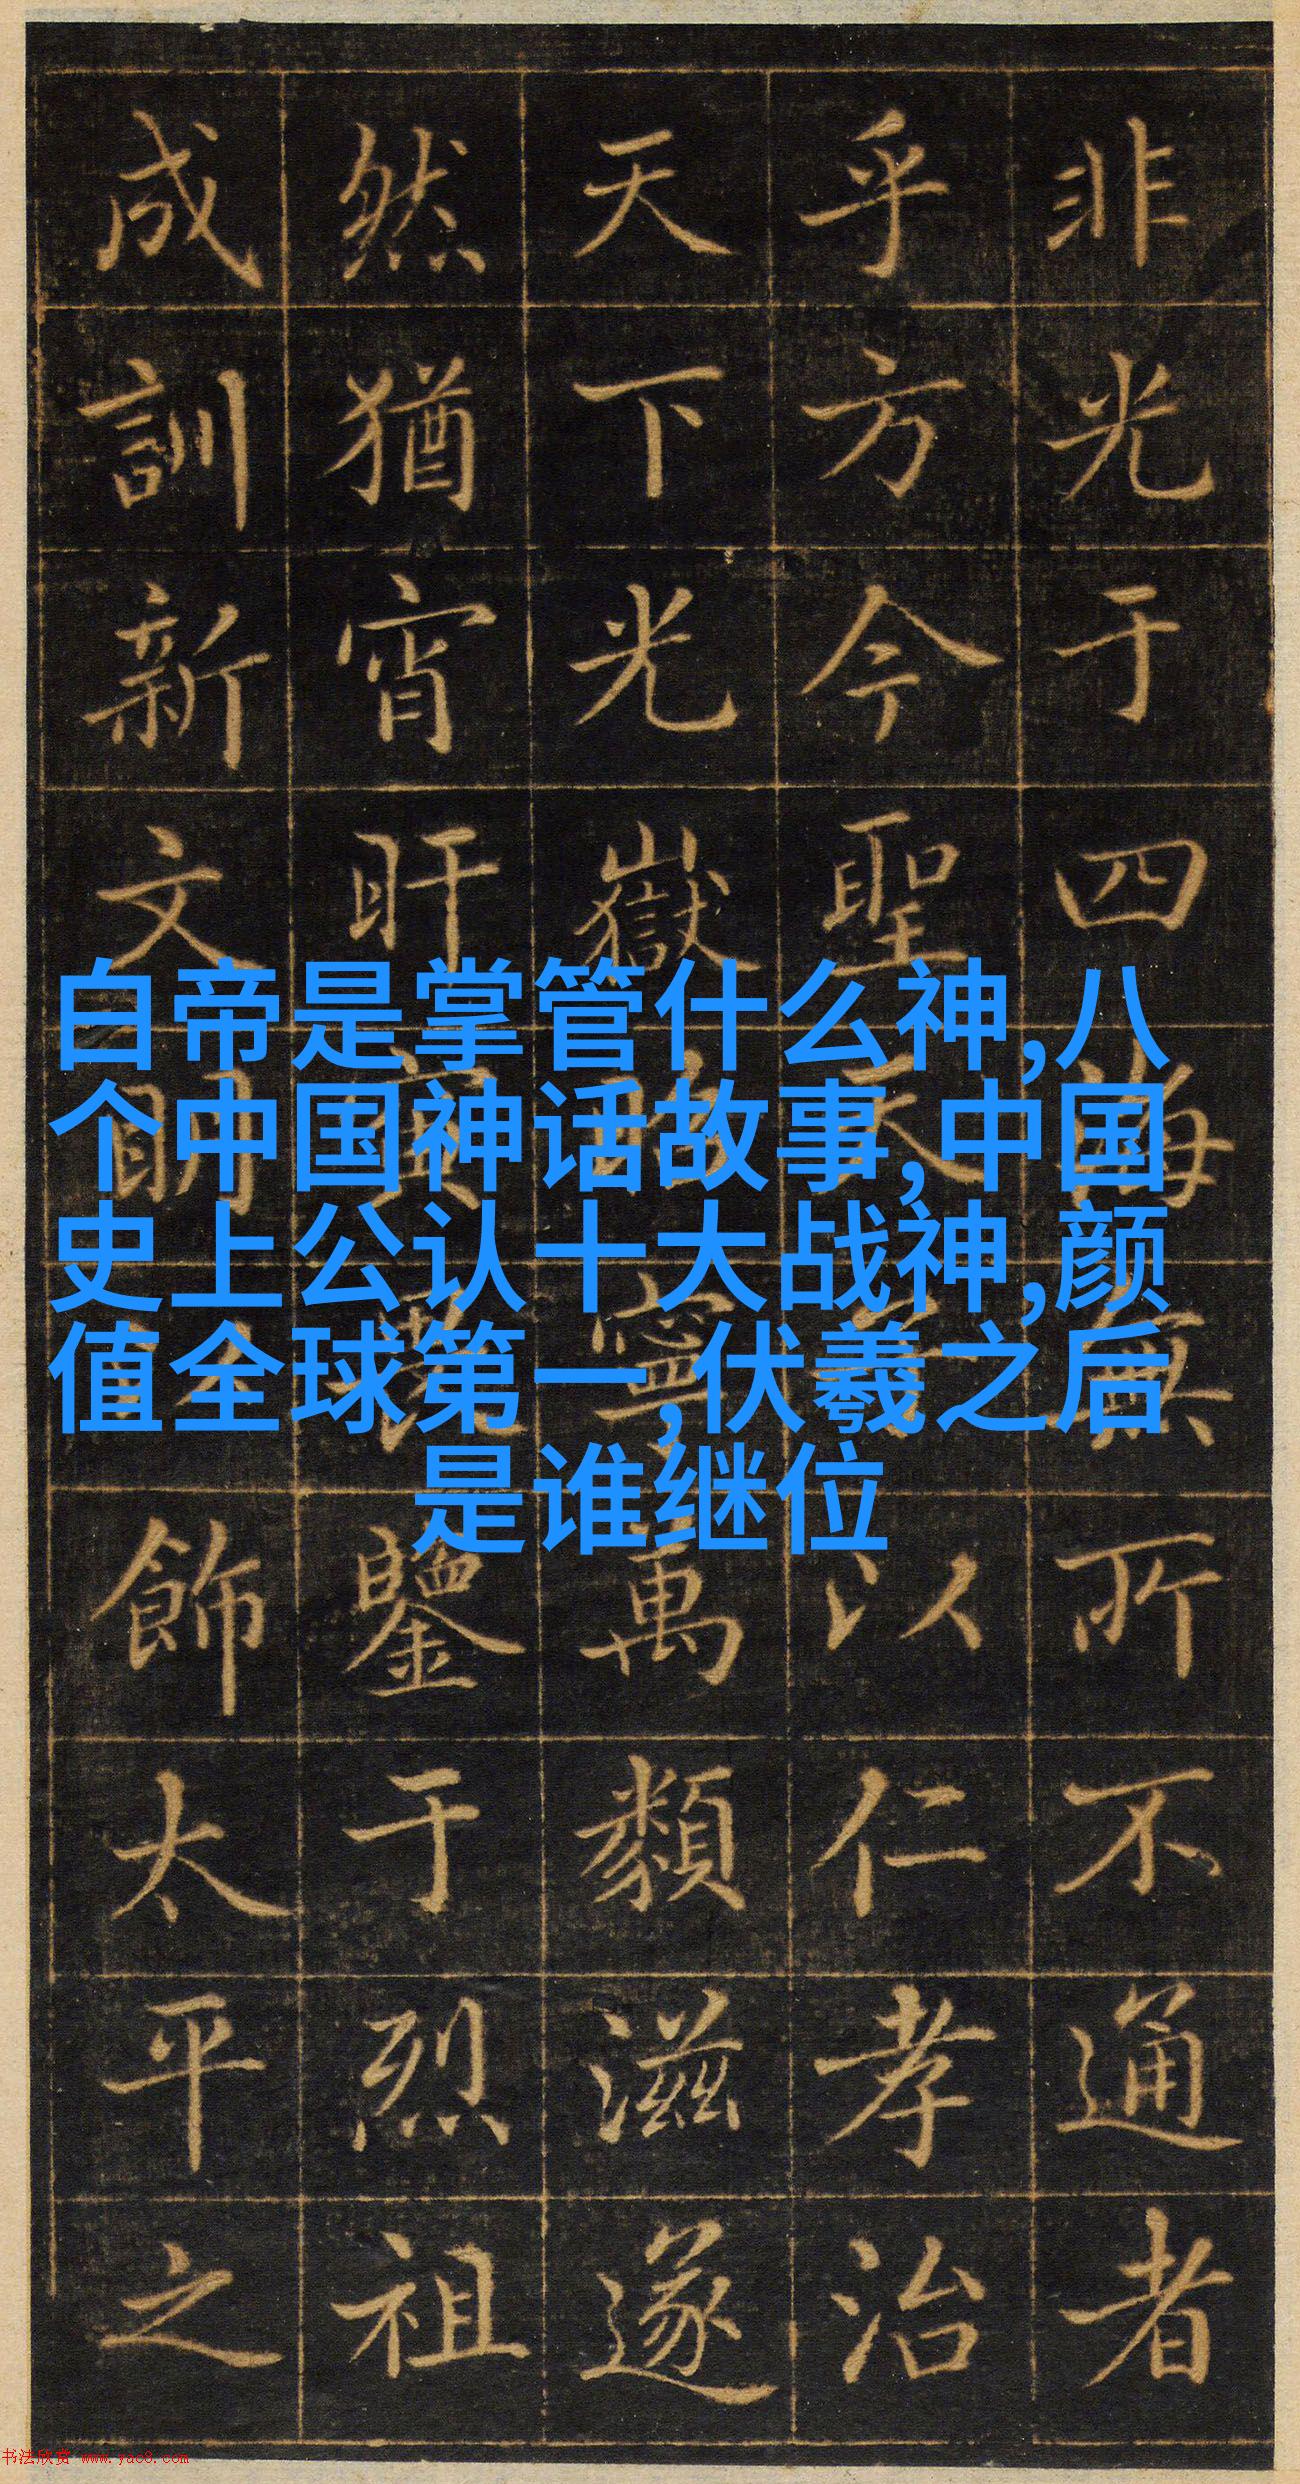 非光于四海無所不通者
乎方今聖以仁孝治
天下光嶽寧萬類滋遂
然猶宵旰鑒于烈祖
成訓新文眀飾太平之
白帝是掌管什么神,八
个中国神话故事,中国
史上公认十大战神,颜
值全球第一,伏羲之后
是谁继位
书法欣赏 www.yac8.com